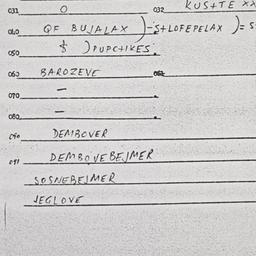 031 O 032 KUS+TE XX
040 QF BUJALAX )-S+LOFEPELAX )= S
050 ) PUPC+IKES.
060 BAROZEVE 061
070 —
080 —
090 DEMBOVER
091 DEMBOVEBEJMER
SOSNEBEJMER
JEGLOVE